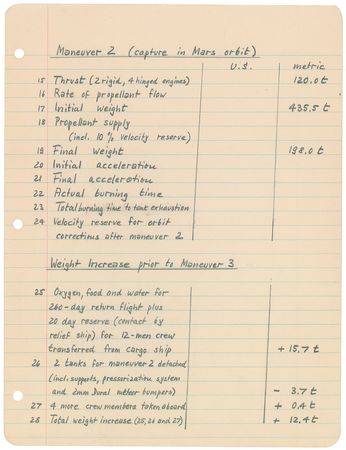 Maneuver 2 (capture in Mars orbit)
U.S. metric
15 Thrust (2 rigid, 4 hinged engines) 120.0 t
16 Rate of propellant flow
17 Initial weight 435.5 t
18 Propellant supply
(incl. 10% velocity reserve)
19 Final weight 198.0 t
20 Initial acceleration
21 Final acceleration
22 Actual burning time
23 Total burning time to tank exhaustion
24 Velocity reserve for orbit
corrections after maneuver 2
Weight Increase prior to Maneuver 3
25 Oxygen, food and water for
260-day return flight plus
20 day reserve (contact by
relief ship) for 12-men crew
transferred from cargo ship + 15.7 t
26 2 tanks for maneuver 2 detached
(incl. supports, pressurization system
and 2mm Dural meteor bumpers) - 3.7 t
27 4 more crew members taken aboard + 0.4 t
28 Total weight increase (25, 26 and 27) + 12.4 t